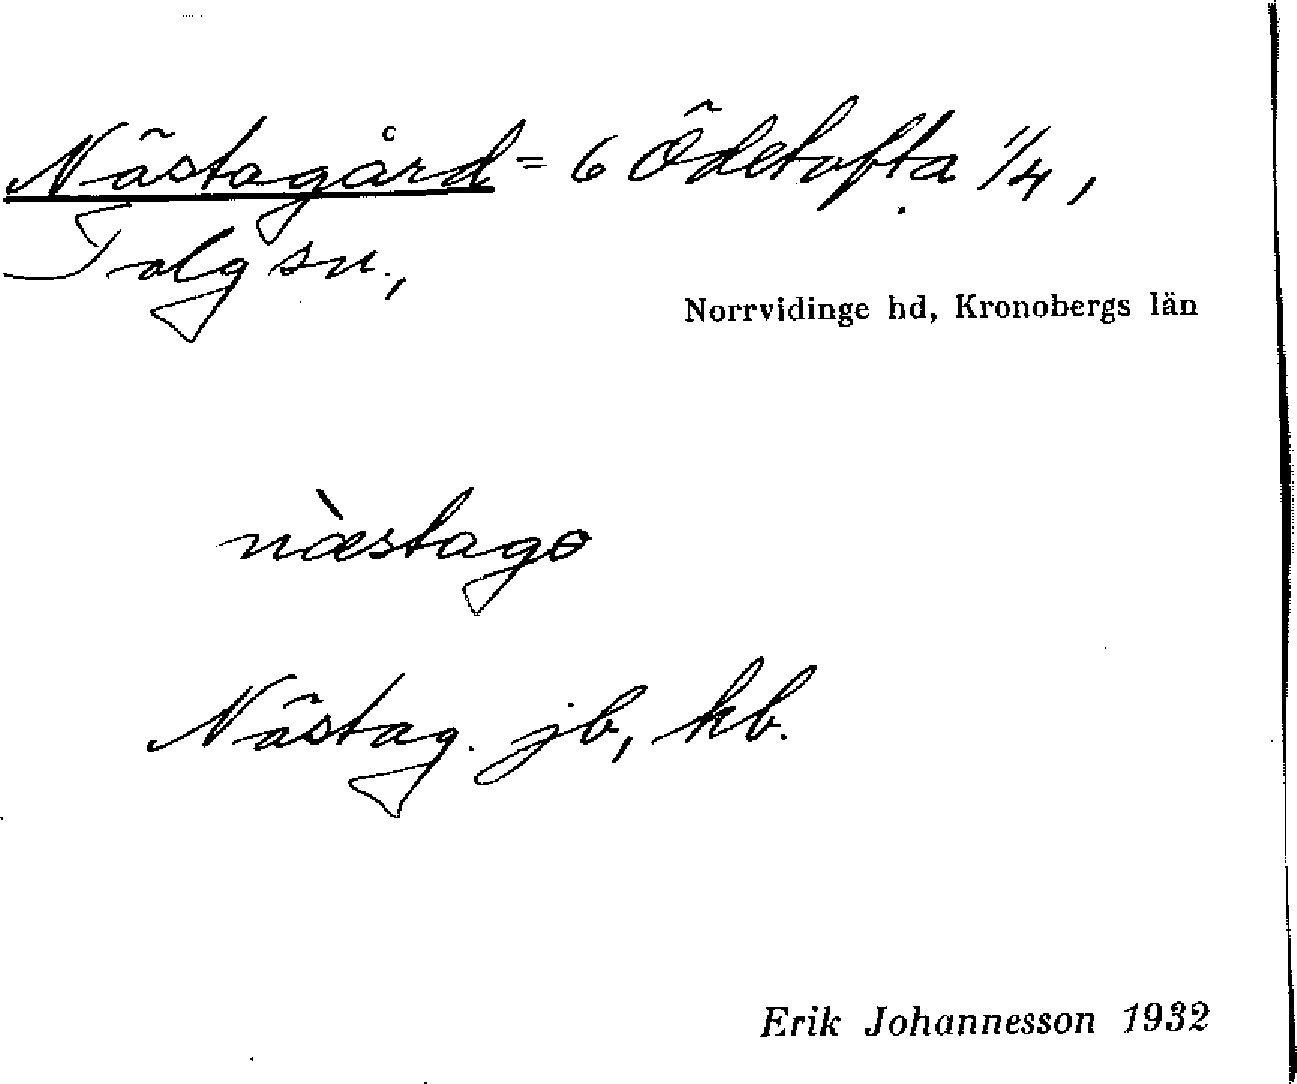 Nästagård = 6 Ödetofta 1/4,
Tolg sn.,
Norrvidinge hd, Kronobergs län
nὰestago
Nästag. jb, kb.
Erik Johannesson 1932